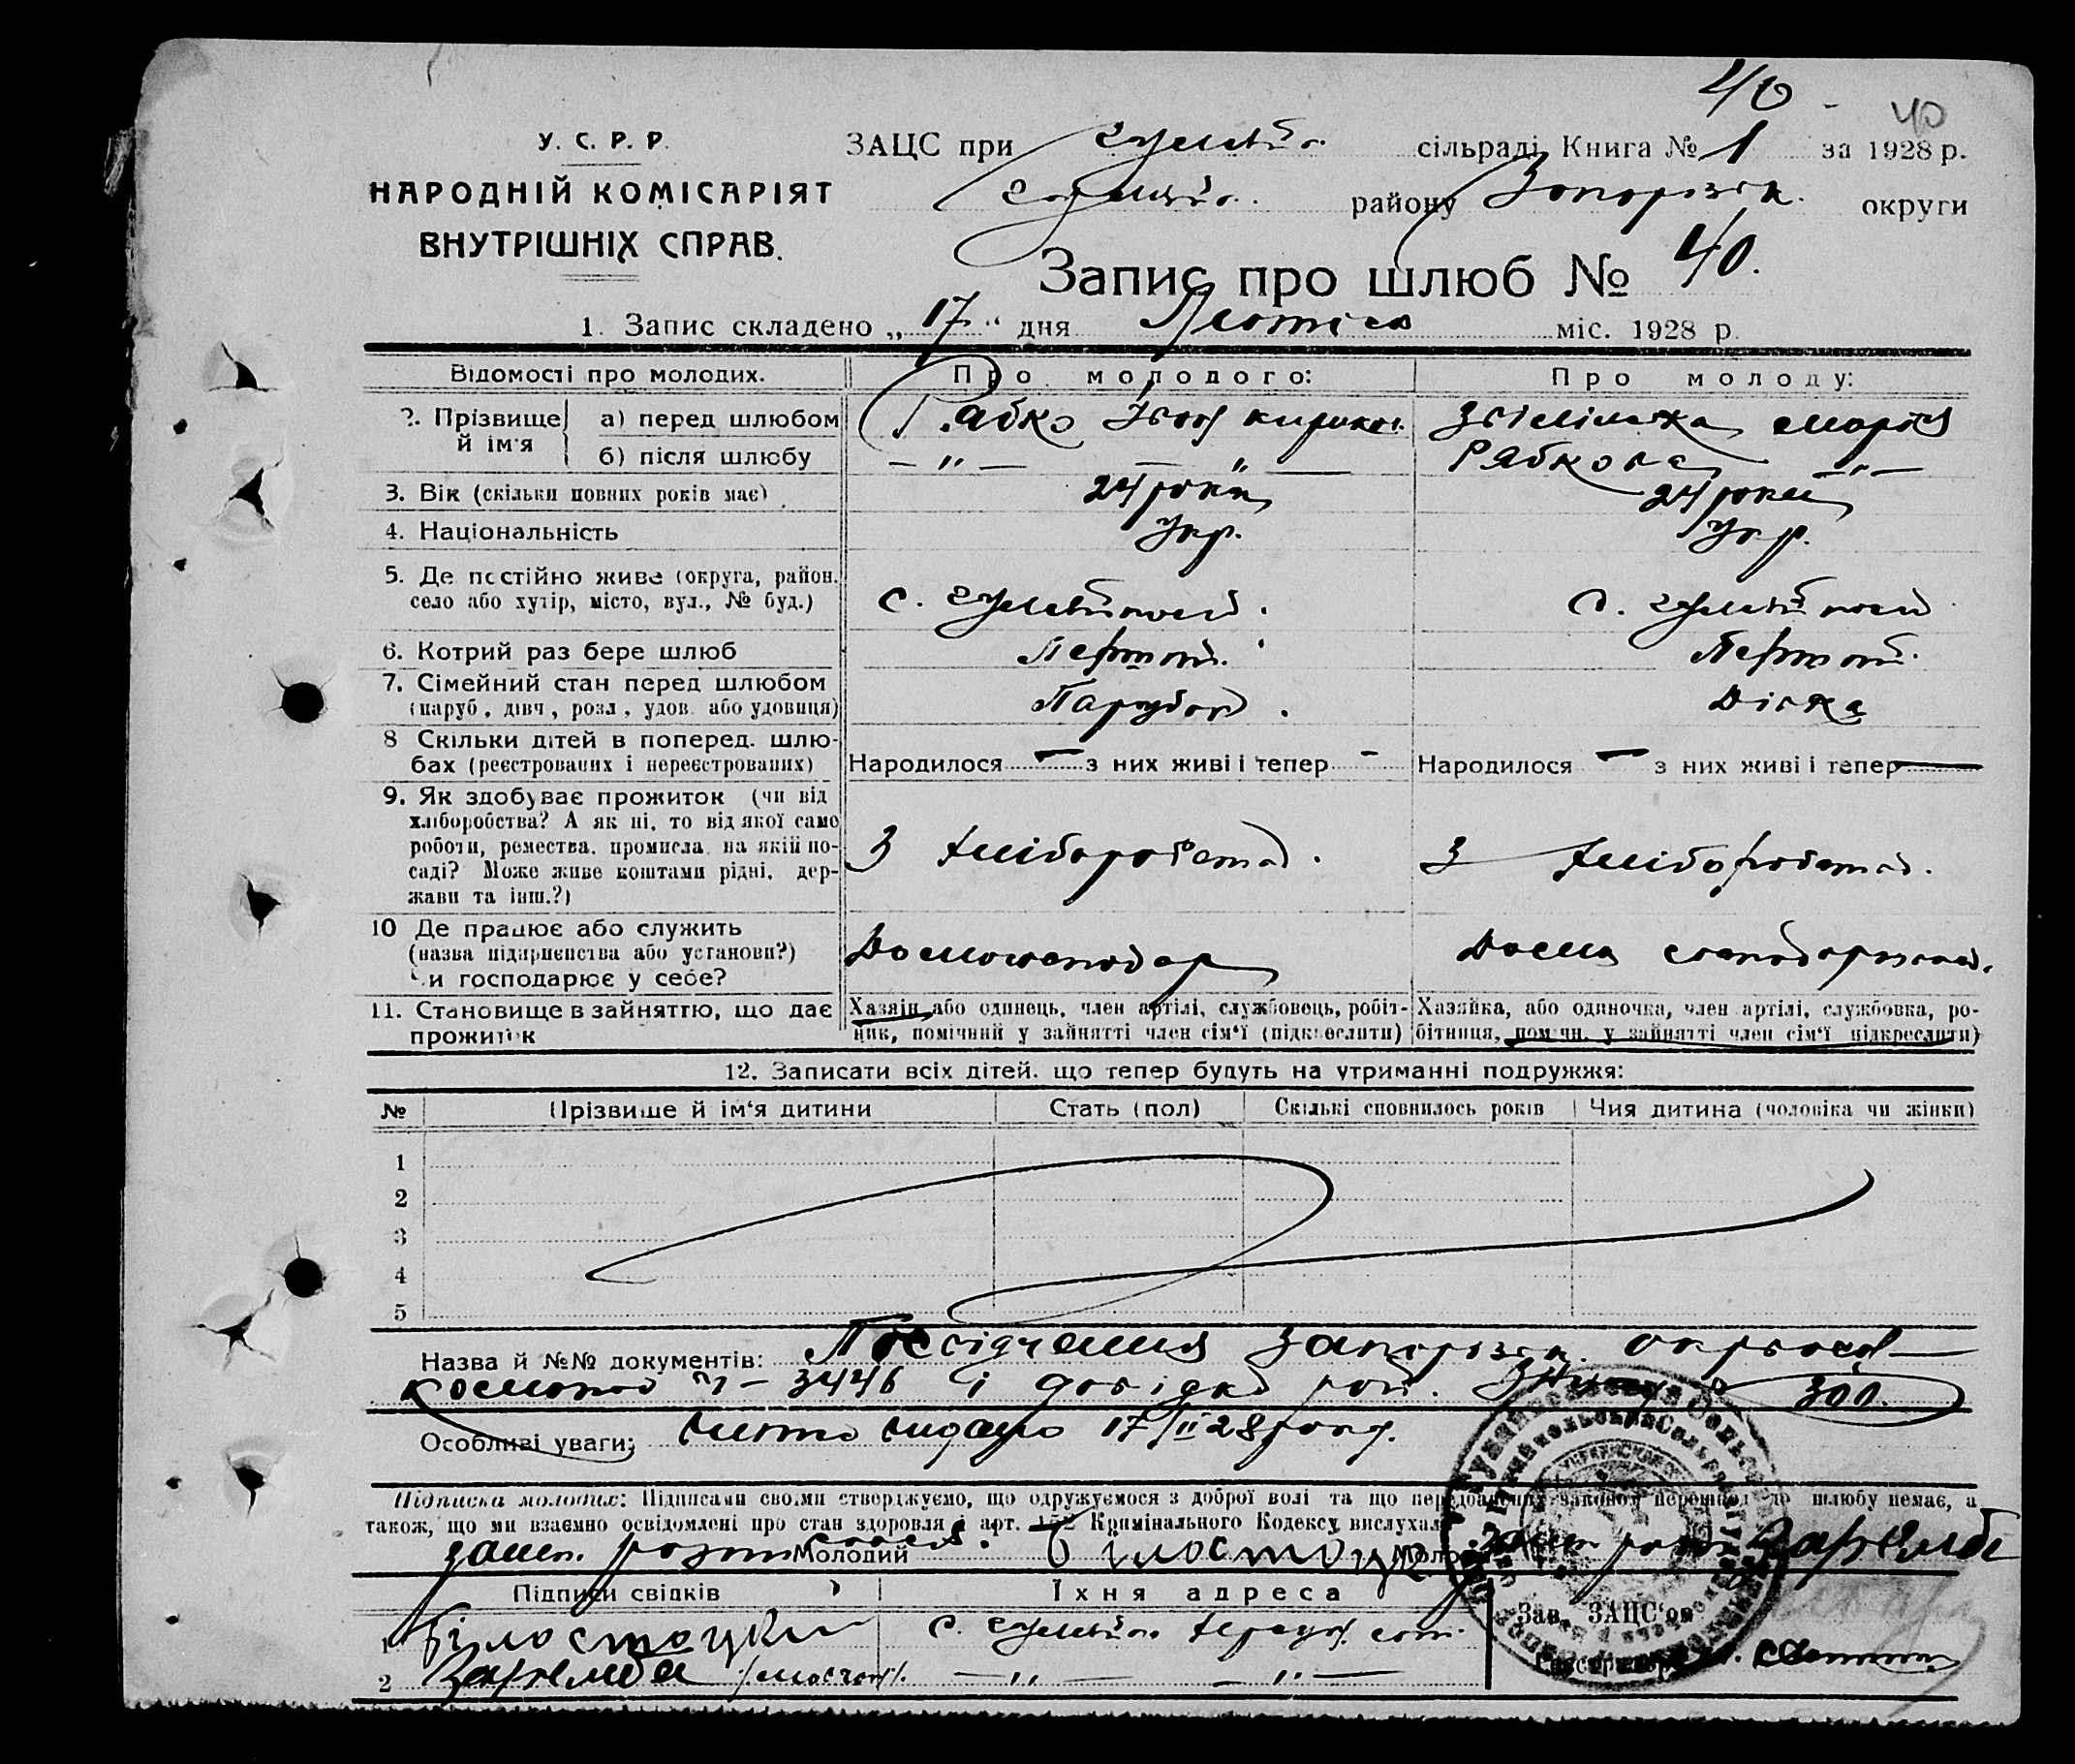 40 -
40
У. С. Р. Р.
НАРОДНІЙ КОМІСАРІЯТ
ВНУТРІШНІХ СПРАВ.
ЗАЦС при Гуляйп. сільраді Книга № 1 за 1928 р.
Гуляйп. району Запорізьк. округи
Запис про шлюб № 40.
1. Запис складено „17“ дня Лютого міс. 1928 р.
Відомості про молодих. Про молодого: Про молоду:
2. Прізвище й ім'я а) перед шлюбом Рябко Іван Марія
б) після шлюбу — " — — " — Рябкова — " —
3. Вік (скільки повних років має) 24 роки 24 роки
4. Національність Укр. Укр.
5. Де постійно живе (округа, район,
село або хутір, місто, вул., № буд.) с. Гуляйполе. с. Гуляйполе
6. Котрий раз бере шлюб Перший. Перший.
7. Сімейний стан перед шлюбом
(паруб., дівч., розл., удов. або удовиця) Парубок. Дівка
8 Скільки дітей в поперед. шлю-
бах (реєстрованих і нереєстрованих) Народилося — з них живі і тепер - Народилося — з них живі і тепер —
9. Як здобуває прожиток (чи від
хліборобства? А як ні, то від якої само
роботи, ремества, промисла, на якій по-
саді? Може живе коштами рідні, дер-
жави та інш.?)
З хліборобства. З хліборобства.
10 Де працює або служить
(назва підприємства або установи?)
Чи господарює у себе?
Домогосподар Дома
11. Становище в зайняттю, що дає
прожиток
Хазяїн, або одинець, член артілі, службовець, робіт-
ник, помічний у зайнятті член сім'ї (підкреслити)
Хазяйка, або одиночка, член артілі, службовка, ро-
бітниця, поміч. у зайнятті член сім'ї підкреслити)
12. Записати всіх дітей, що тепер будуть на утриманні подружжя:
№ Прізвище й ім'я дитини Стать (пол) Скількі сповнилось років Чия дитина (чоловіка чи жінки)
1
2
3
4
5
Назва й №№ документів: Посвідчення Запорізьк.
№ — 3446 і довідка рай. 300.
Особливі уваги: видано 17/II 28 року.
Підписка молодих: Підписами своїми стверджуємо, що одружуємося з доброї волі та що передбачених законом перешкод до шлюбу немає, а
також, що ми взаємно освідомлені про стан здоровля і арт. 152 Кримінального Кодексу вислухали
Молодий Білостоцк Молода
Підписи свідків Їхня адреса
Зав. ЗАЦС'ом
1 Білостоцки с. Гуляйпол.
2 — " — — " —